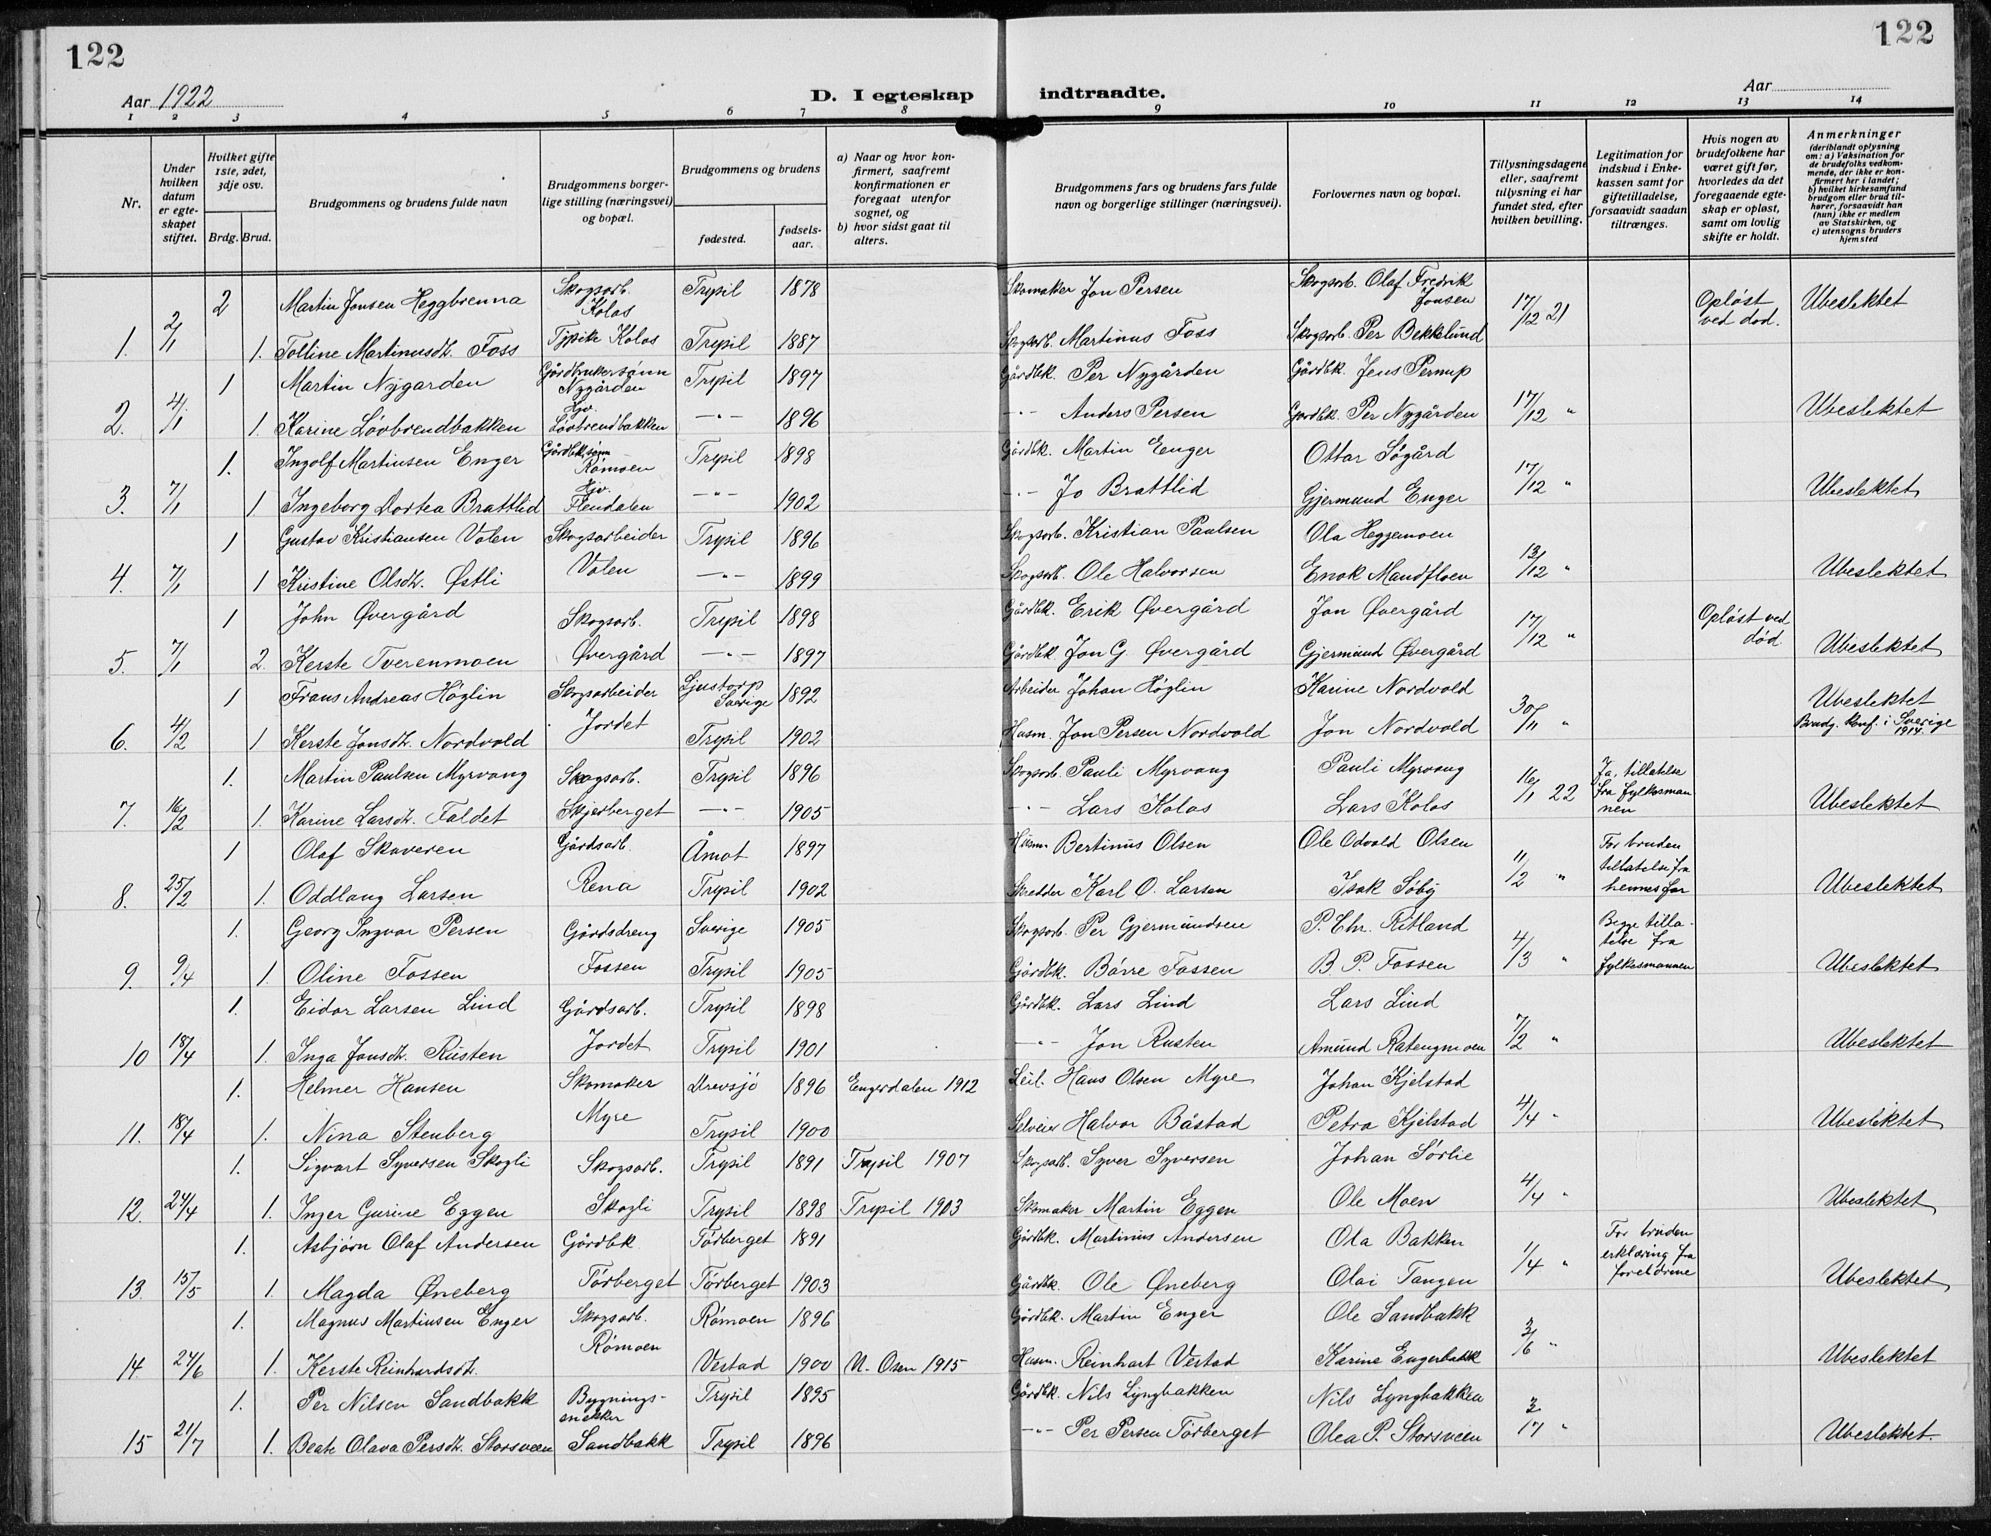 122
122
Aar 1922
D. I egteskap indtraadte.
Aar
1 2 3 4 5 6 7 8 9 10 11 12 13 14
Nr.
Under hvilken datum er egteskapet stiftet.
Hvilket gifte 1ste, 2det, 3dje osv.
Brdg. Brud.
Brudgommens og brudens fulde navn
Brudgommens borgerlige stilling (næringsvei) og bopæl.
Brudgommens og brudens
fødested.
fødselsaar.
a) Naar og hvor konfirmert, saafremt konfirmationen er foregaat utenfor sognet, og
b) hvor sidst gaat til alters.
Brudgommens fars og brudens fars fulde navn og borgerlige stillinger (næringsvei).
Forlovernes navn og bopæl.
Tillysningsdagene eller, saafremt tillysning ei har fundet sted, efter hvilken bevilling.
Legitimation for indskud i Enkekassen samt for giftetilladelse, forsaavidt saadan tiltrænges.
Hvis nogen av brudefolkene har været gift før, hvorledes da det foregaaende egteskap er opløst, samt om lovlig skifte er holdt.
Anmerkninger (deriblandt oplysning om: a) Vaksination for de brudefolks vedkommende, der ikke er konfirmert her i landet; b) hvilket kirkesamfund brudgom eller brud tilhører, forsaavidt han (hun) ikke er medlem av Statskirken, og c) utensogns bruders hjemsted
2 Martin Jonsen Heggbrenna Skogsarb. Kolos Trysil 1878 Skomaker Jon Persen Skogsarb. Olaf Fredrik Jonsen 17/12 21 Opløst ved død. Ubeslektet
1. 2/1 1. Tolline Martinusdt. Foss Tjpike Kolos Trysil 1887 Skogsarb. Martinus Foss Skogsarb. Per Bekklund
1 Martin Nygarden Gårdbrukersønn Nygården Trysil 1897 Gårdbk. Per Nygården Gårdbk. Jens Pernup
2. 4/1 1. Karine Løvbrendbakken Hjv. Løvbrendbakken —"— 1896 —"— Anders Persen Gardbk. Per Nygården 17/12 " Ubeslektet
1. Ingolf Martinsen Enger Gårdbk.sønn Rømoen Trysil 1898 Gårdbk. Martin Enger Ottar Søgård
3. 7/1 1 Ingeborg Dortea Brattlid Hjv. Flendalen —"— 1902 —"— Jo Brattlid Gjermund Enger 17/12 " Ubeslektet
1 Gustav Kristiansen Volen Skogsarbeider Trysil 1896 Skogsarb. Kristian Paulsen Ola Heggemoen
4. 7/1 1 Kristine Olsdt. Østli Volen —"— 1899 Skogsarb. Ole Halvorsen Enok Mandfloen 13/12 " Ubeslektet
1 John Øvergård Skogsarb. Trysil 1898 Gårdbk. Erik Øvergård Jon Øvergård Opløst ved død
5. 7/1 2. Kerste Tverenmoen Øvergård —"— 1897 Gårdbk Jon G. Øvergård Gjermund Øvergård 17/12 " Ubeslektet
1 Frans Andreas Höglin Skogsarbeider Ljustorp Sverige 1892 Arbeider Johan Höglin Karine Nordvold Ubeslektet
6. 4/2 1 Kerste Jonsdt. Nordvold Jordet Trysil 1902 Husm. Jon Persen Nordvold Jon Nordvold 30/11 " Brudg. konf. i Sverige 1914.
1. Martin Paulsen Myrvang Skogsarb. Trysil 1896 Skogsarb. Pauli Myrvang Pauli Myrvang Ja, tillatelse fra fylkesmannen
7. 16/2 1. Karine Larsdt. Faldet Skjærberget —"— 1905 —"— Lars Kolos Lars Kolos 16/1 22 Ubeslektet
1 Olaf Skaveren Gårdsarb. Åmot 1897 Husm. Bertinus Olsen Ole Odvald Olsen For bruden tillatelse fra hennes far
8. 25/2 1. Oddlaug Larsen Rena Trysil 1902 Skredder Karl O. Larsen Isak Søby 11/2 " Ubeslektet
1. Georg Ingvar Persen Gårdsdreng Sverige 1905 Skogsarb. Per Gjermundsen P. Chr. Ritland Begge tillatelse fra fylkesmannen
9. 9/4 1. Oline Fossen Fossen Trysil 1905 Gårdbk. Børre Fossen B P. Fossen 4/3 " Ubeslektet
1. Eidar Larsen Lind Gårdsarb. Trysil 1898 Gårdbk. Lars Lind Lars Lind
10 18/4 1. Inga Jonsdt. Rusten Jordet Trysil 1901 —"— Jon Rusten Amund Ratengmoen 7/2 " Ubeslektet
1. Helmer Hansen Skomaker Drevsjø 1896 Engerdalen 1912 Leil. Hans Olsen Myre Johan Kjelstad
11. 18/4 1. Nina Stenberg Myre Trysil 1900 Selveier Halvor Båstad Petra Kjelstad 4/4 " Ubeslektet
1. Sigvart Syversen Skogli Skogsarb. Trysil 1891 Trysil 1907 Skogsarb. Syver Syversen Johan Sørlie
12. 24/4 1. Inger Gurine Eggen Skogli Trysil 1898 Trysil 1903 Skomaker Martin Eggen Ole Moen 4/4 " Ubeslektet
1. Asbjørn Olaf Andersen Gårdbk Tørberget 1891 Gårdbk. Martinus Andersen Ola Bakken For bruden erklæring fra foreldrene
13. 15/5 1. Magda Øneberg Tørberget Tørberget 1903 Gårdbk. Ole Øneberg Olai Tangen 1/4 " Ubeslektet
1. Magnus Martinsen Enger Skogsarb. Rømoen 1896 Gårdbk. Martin Enger Ole Sandbakk
14 24/6 1. Kerste Reinhardsdt. Rømoen Vestad 1900 N. Osen 1915 Husm. Reinhart Vestad Karine Engerbakk 3/6 " Ubeslektet
1. Per Nilsen Sandbakk Bygningssnekker Trysil 1895 Gårdbk. Nils Lyngbakken Nils Lyngbakken
15 21/7 1. Beate Olava Persdt. Storsveen Sandbakk Trysil 1896 —"— Per Persen Tørberget Olea P. Storsveen Ubeslektet.